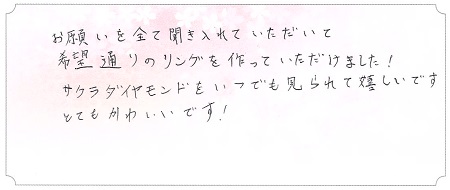 お願いを全て聞き入れていただいて
希望通りのリングを作っていただけました!
サクラダイヤモンドをいつでも見られて嬉しいです
とてもかわいいです!